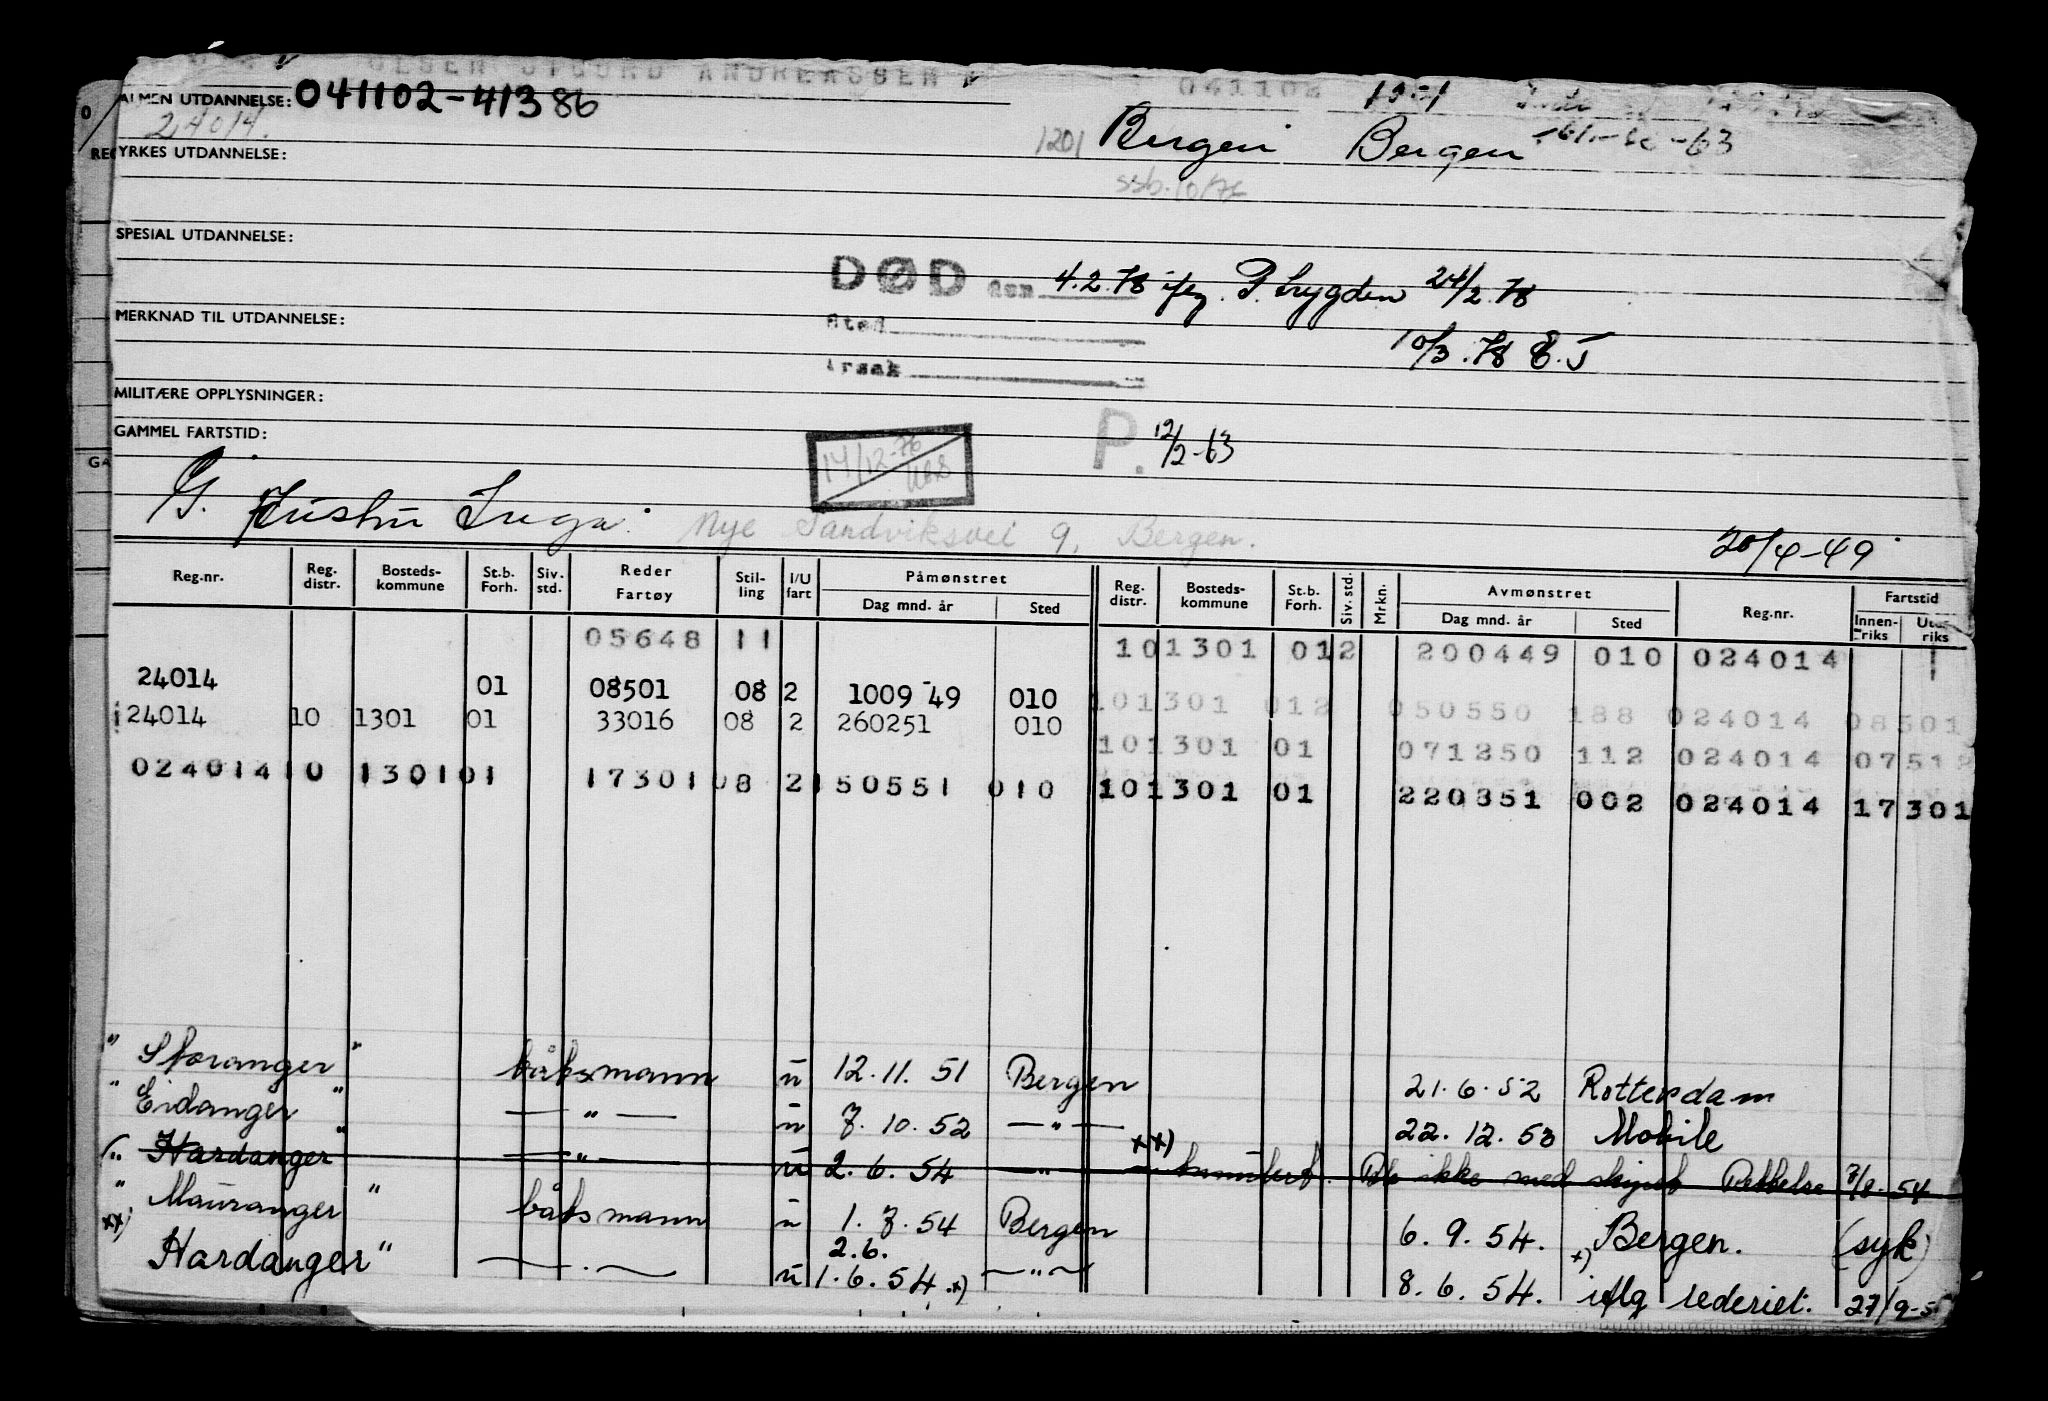 OLSEN SIGURD ANDREASSEN 041102
ALMEN UTDANNELSE: 041102-41386
24014.
1201 Bergen Bergen
YRKES UTDANNELSE:
ssb. 10/76
SPESIAL UTDANNELSE:
DØD den 4.2.78 ifg. P. trygden 24/2.78
MERKNAD TIL UTDANNELSE:
Sted
10/3.78 E.J
Årsak
MILITÆRE OPPLYSNINGER:
GAMMEL FARTSTID:
P. 12/2-63
14/12-76
G. Nye Sandviksvei 9, Bergen.
20/4-49
Reg.nr. Reg. distr. Bosteds-kommune St.b. Forh. Siv. std. Reder Fartøy Stil-ling I/U fart Påmønstret Dag mnd. år Sted Reg. distr. Bosteds-kommune St.b. Forh. Siv. std. Mrkn. Avmønstret Dag mnd. år Sted Reg.nr. Fartstid Innen-riks Uten riks
05648 11 101301 012 200449 010 024014
24014 01 08501 08 2 1009 49 010 101301 012 050550 188 024014 08501
24014 10 1301 01 33016 08 2 260251 010 101301 01 071250 112 024014
024014 10 1301 01 17301 08 2 150551 010 101301 01 220851 002 024014 17301
" Storanger " båtsmann u 12.11.51 Bergen 21.6.52 Rotterdam
" Eidanger " — " — u 7.10.52 — " — 22.12.53 Mobile
" Hardanger " — " — u 2.6.54 — " — xx) annullert. Ble ikke med skipet
" Mauranger " båtsmann u 1.7.54 Bergen 6.9.54. Bergen. (syk)
xx) Hardanger " — " — u 2.6. 1.6.54 x) — " — 8.6.54. x) iflg rederiet. 27/9-5